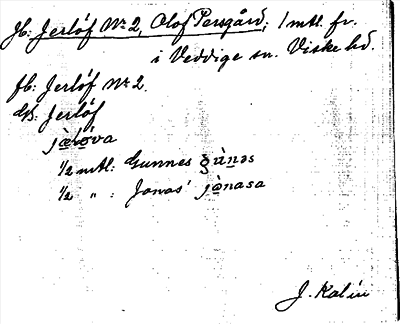 Jb: Jerlöf Nr 2, Olof Persgård; 1 mtl. fr.
i Veddige sn. Viske hd.
Jb: Jerlöf Nr 2.
GK: Jerlöf
jä̀rlö̀va
1/2 mtl: Gunnes gùnəs
1/2 " : Jonas' jònasa
J. Kalén